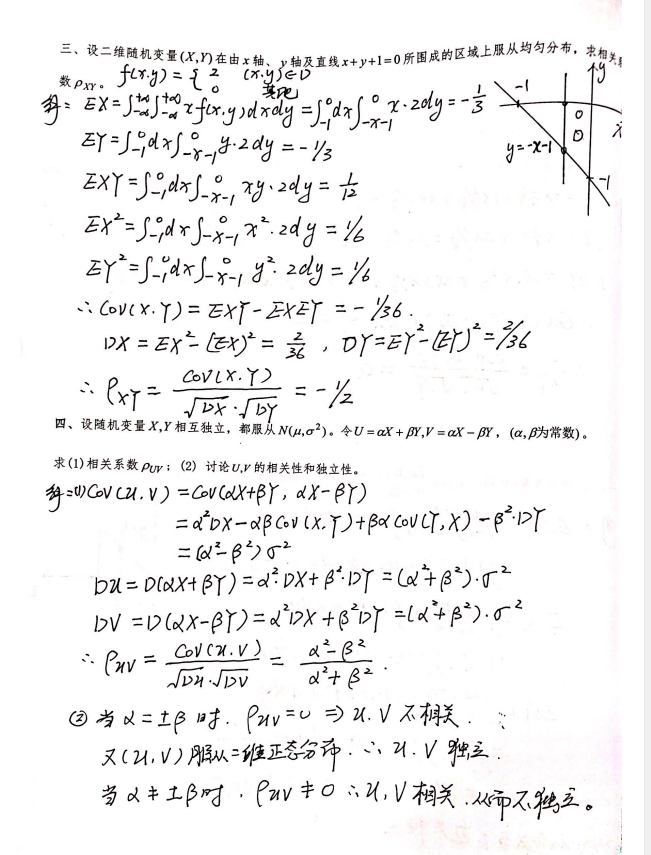 三、设二维随机变量(X,Y)在由x轴、y轴及直线x+y+1=0所围成的区域上服从均匀分布，求相关系
数ρXY。 f(x.y) = { 2 (x.y)∈D
0 其他
解: EX=∫_{-∞}^{+∞}∫_{-∞}^{+∞} x f(x.y)dxdy = ∫_{-1}^{0}dx∫_{-x-1}^{0} x·2dy = -1/3
EY=∫_{-1}^{0}dx∫_{-x-1}^{0} y·2dy = -1/3
EXY=∫_{-1}^{0}dx∫_{-x-1}^{0} xy·2dy = 1/12
EX²=∫_{-1}^{0}dx∫_{-x-1}^{0} x²·2dy = 1/6
EY²=∫_{-1}^{0}dx∫_{-x-1}^{0} y²·2dy = 1/6
y
-1
0
x
D
y=-x-1
-1
∴ Cov(X.Y) = EXY-EXEY = -1/36.
DX = EX²-(EX)² = 2/36 , DY=EY²-(EY)²=2/36
∴ ρXY = Cov(X.Y)/(√DX·√DY) = -1/2
四、设随机变量X,Y相互独立，都服从N(μ,σ²)。令U=αX+βY,V=αX-βY，(α,β为常数)。
求(1)相关系数ρUV；(2) 讨论U,V的相关性和独立性。
解:(1) Cov(U.V) = Cov(αX+βY, αX-βY)
= α²DX-αβCov(X.Y)+βαCov(Y,X)-β²·DY
= (α²-β²)σ²
DU = D(αX+βY) = α²·DX+β²·DY = (α²+β²)·σ²
DV = D(αX-βY) = α²DX+β²DY = (α²+β²)·σ²
∴ ρuv = Cov(U.V)/(√DU·√DV) = (α²-β²)/(α²+β²).
② 当α=±β时. ρuv=0 ⇒ U.V不相关.
又(U,V)服从二维正态分布. ∴ U.V独立.
当α≠±β时, ρuv≠0 ∴ U,V相关.从而不独立。